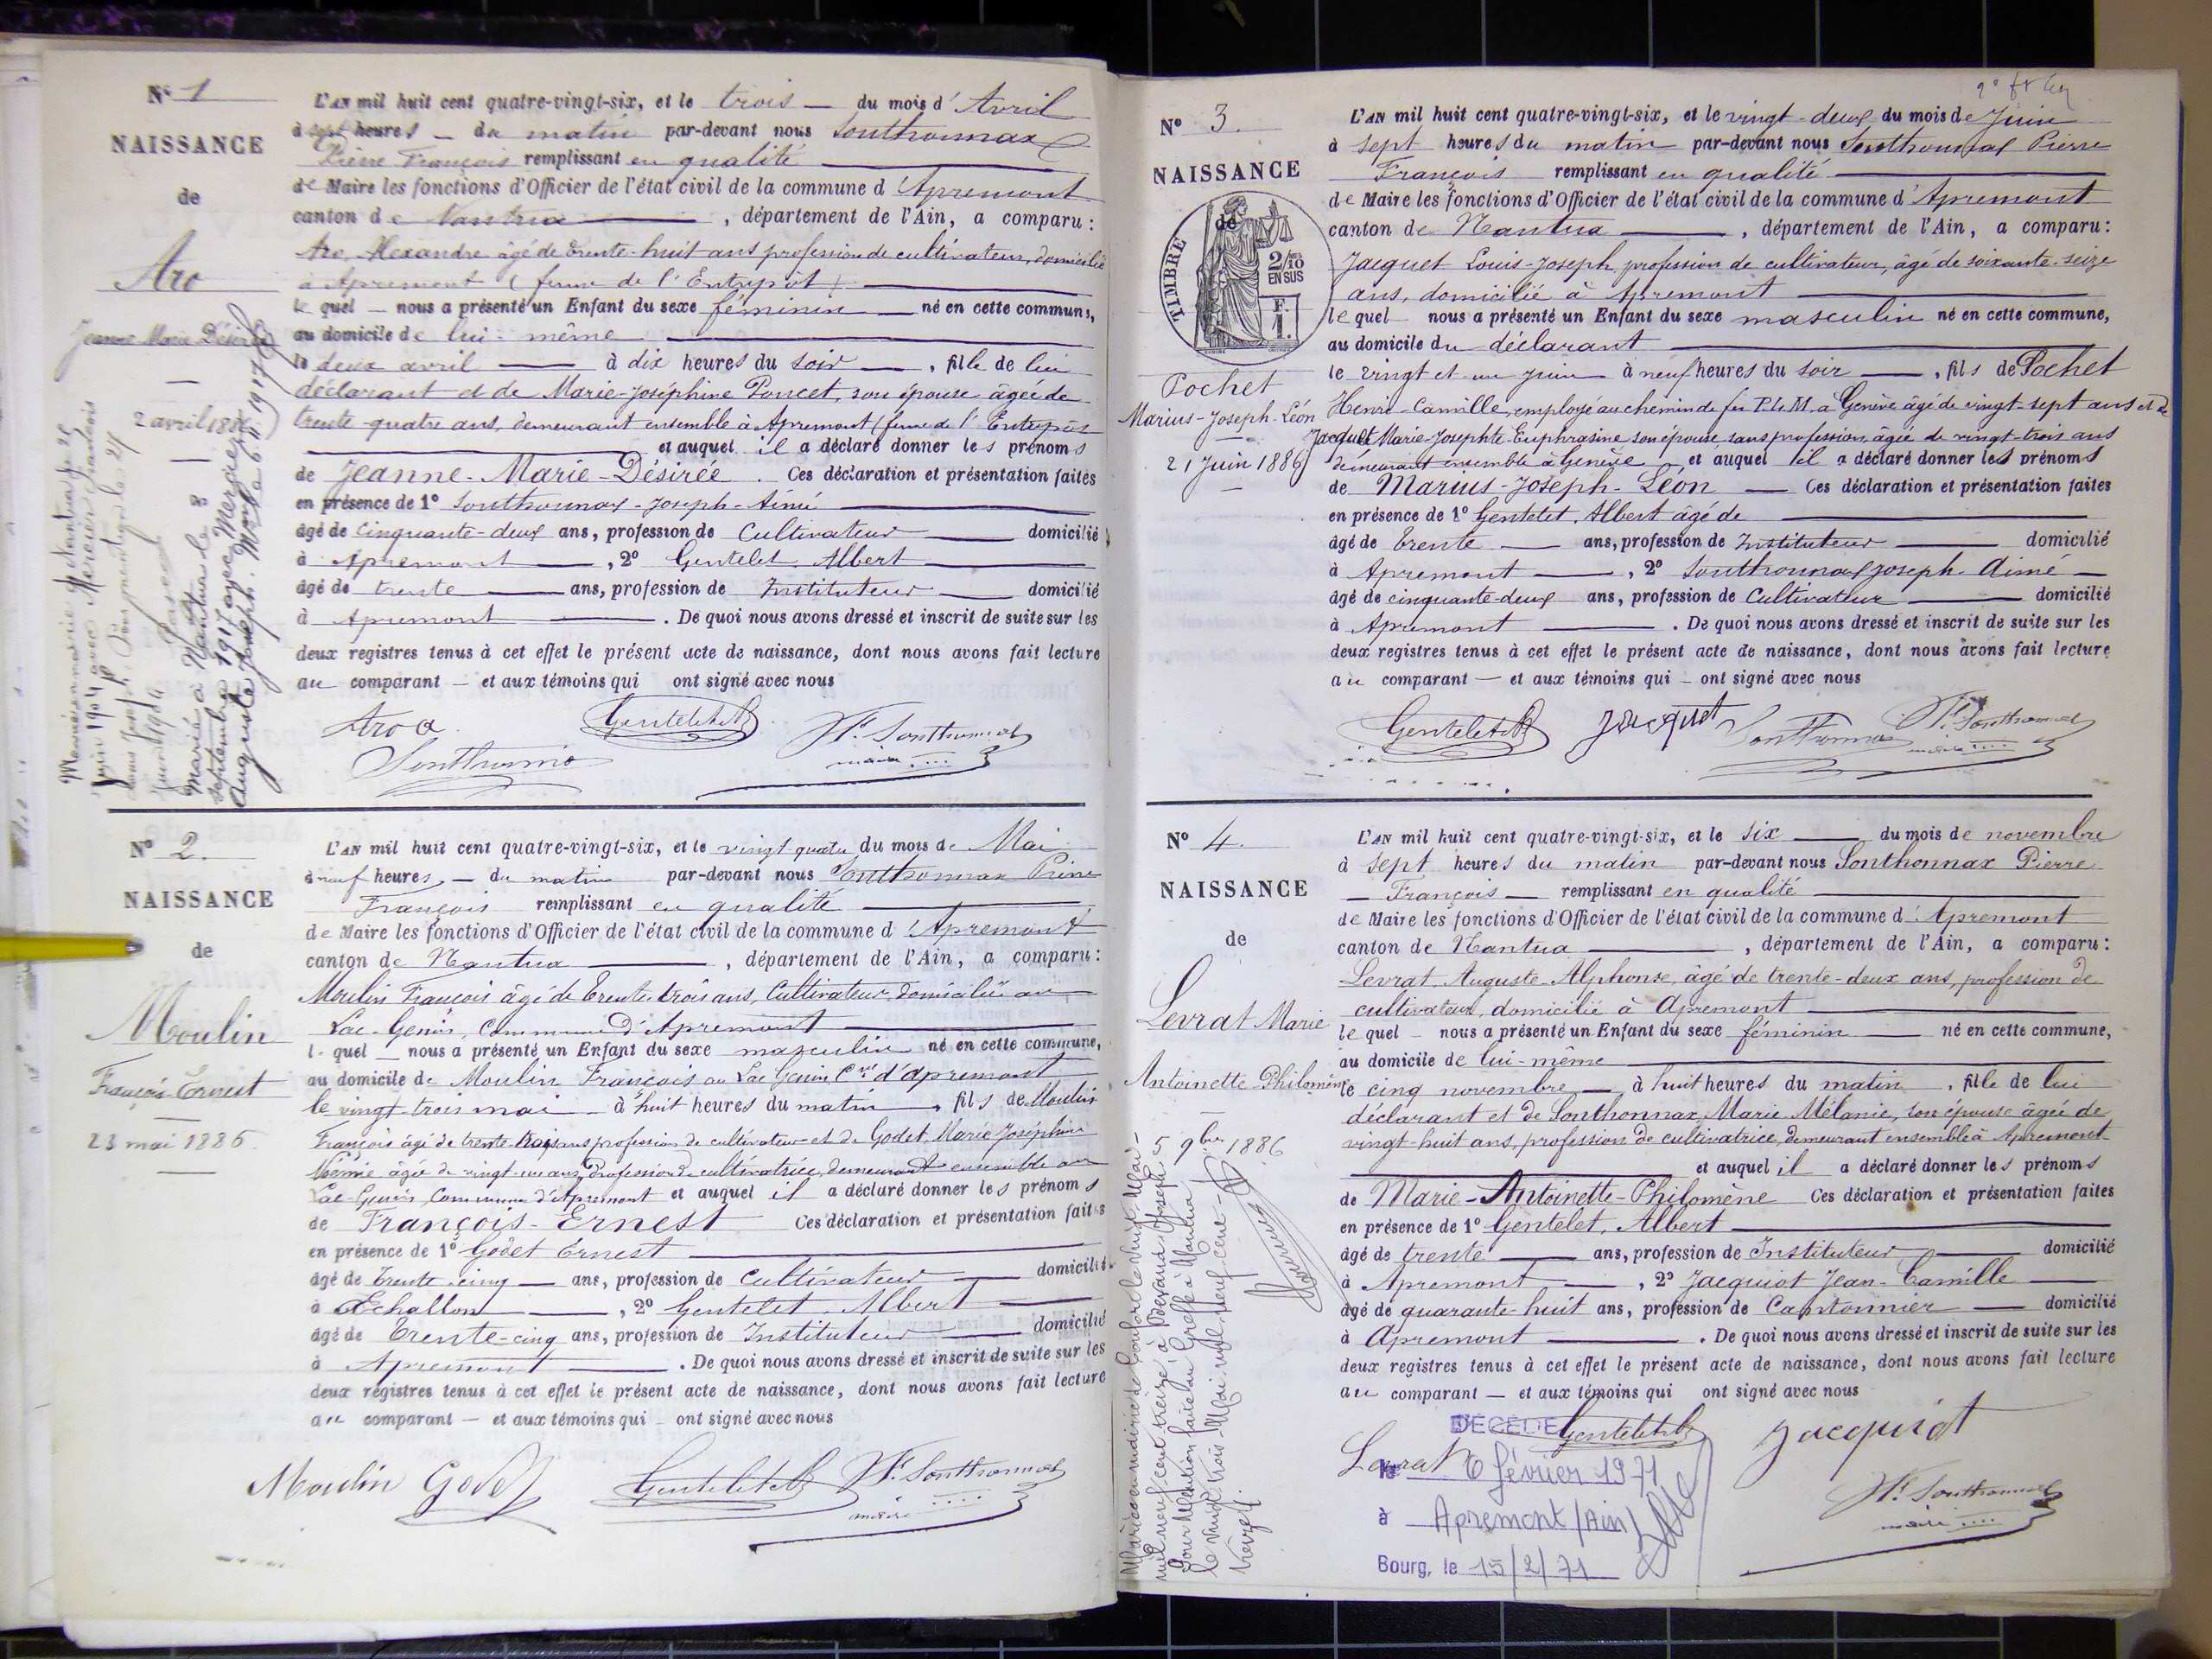 N° 1
NAISSANCE
de
Aro
Jeanne Marie Désirée
2 avril 1886
L'AN mil huit cent quatre-vingt-six, et le trois du mois d'Avril
à sept heures du matin par-devant nous Sonthonnax
Pierre François remplissant en qualité
de Maire les fonctions d'Officier de l'état civil de la commune d'Apremont
canton de Nantua, département de l'Ain, a comparu :
Aro, Alexandre âgé de trente-huit ans profession de cultivateur, domicilié
à Apremont (ferme de l'Entrepôt)
le quel nous a présenté un Enfant du sexe féminin né en cette commune,
au domicile de lui-même
le deux avril à dix heures du soir, fille de lui
déclarant et de Marie-Joséphine Poncet, son épouse âgée de
trente-quatre ans, demeurant ensemble à Apremont (ferme de l'Entrepôt
et auquel il a déclaré donner les prénoms
de Jeanne-Marie-Désirée. Ces déclaration et présentation faites
en présence de 1° Sonthonnax-Joseph-Aimé
âgé de cinquante-deux ans, profession de Cultivateur domicilié
à Apremont, 2° Gentelet Albert
âgé de trente ans, profession de Instituteur domicilié
à Apremont. De quoi nous avons dressé et inscrit de suite sur les
deux registres tenus à cet effet le présent acte de naissance, dont nous avons fait lecture
au comparant et aux témoins qui ont signé avec nous
Aro a
Gentelet A
Sonthonnax
P.F. Sonthonnax
maire
Marié à Nantua le 8
septembre 1917 avec Mercier
Auguste Joseph.
N° 2.
NAISSANCE
de
Moulin
François Ernest
23 mai 1886.
L'AN mil huit cent quatre-vingt-six, et le vingt-quatre du mois de Mai
à neuf heures du matin par-devant nous Sonthonnax Pierre
François remplissant en qualité
de Maire les fonctions d'Officier de l'état civil de la commune d'Apremont
canton de Nantua, département de l'Ain, a comparu :
Moulin François âgé de trente-trois ans, Cultivateur domicilié au
Lac-Genin, Commune d'Apremont
le quel nous a présenté un Enfant du sexe masculin né en cette commune,
au domicile de Moulin François au Lac Genin Cne d'apremont
le vingt-trois mai à huit heures du matin, fils de Moulin
François âgé de trente-trois ans profession de cultivateur et de Godet Marie Joséphine
Noémie âgée de vingt-un ans, profession de cultivatrice, demeurant ensemble au
Lac-Genin, Commune d'Apremont et auquel il a déclaré donner les prénoms
de François-Ernest Ces déclaration et présentation faites
en présence de 1° Godet Ernest
âgé de trente-cinq ans, profession de cultivateur domicilié
à Echallon, 2° Gentelet Albert
âgé de trente-cinq ans, profession de Instituteur domicilié
à Apremont. De quoi nous avons dressé et inscrit de suite sur les
deux registres tenus à cet effet le présent acte de naissance, dont nous avons fait lecture
au comparant et aux témoins qui ont signé avec nous
Moulin Godet Gentelet A P.F. Sonthonnax
maire
N° 3.
NAISSANCE
de
TIMBRE
2/10
EN SUS
F.
1.
Pochet
Marius-Joseph-Léon
21 Juin 1886
L'AN mil huit cent quatre-vingt-six, et le vingt-deux du mois de Juin
à sept heures du matin par-devant nous Sonthonnax Pierre
François remplissant en qualité
de Maire les fonctions d'Officier de l'état civil de la commune d'Apremont
canton de Nantua, département de l'Ain, a comparu :
Jacquet Louis-Joseph, profession de cultivateur, âgé de soixante-seize
ans, domicilié à Apremont
le quel nous a présenté un Enfant du sexe masculin né en cette commune,
au domicile du déclarant
le vingt et un juin à neuf heures du soir, fils de Pochet
Henri-Camille, employé au chemin de fer P.L.M. à Genève âgé de vingt-sept ans et de
Jacquet Marie-Josephte-Euphrasine son épouse, sans profession, âgée de vingt-trois ans
demeurant ensemble à Genève et auquel il a déclaré donner les prénoms
de Marius-Joseph-Léon Ces déclaration et présentation faites
en présence de 1° Gentelet, Albert âgé de
âgé de trente ans, profession de Instituteur domicilié
à Apremont, 2° Sonthonnax Joseph-Aimé
âgé de cinquante-deux ans, profession de Cultivateur domicilié
à Apremont. De quoi nous avons dressé et inscrit de suite sur les
deux registres tenus à cet effet le présent acte de naissance, dont nous avons fait lecture
au comparant et aux témoins qui ont signé avec nous
Gentelet A Jacquet Sonthonnax P.F. Sonthonnax
maire
N° 4.
NAISSANCE
de
Levrat Marie
Antoinette Philomène
5 9bre 1886
L'AN mil huit cent quatre-vingt-six, et le six du mois de novembre
à sept heures du matin par-devant nous Sonthonnax Pierre
François remplissant en qualité
de Maire les fonctions d'Officier de l'état civil de la commune d'Apremont
canton de Nantua, département de l'Ain, a comparu :
Levrat Auguste-Alphonse, âgé de trente-deux ans, profession de
cultivateur, domicilié à Apremont
le quel nous a présenté un Enfant du sexe féminin né en cette commune,
au domicile de lui-même
le cinq novembre à huit heures du matin, fille de lui
déclarant et de Sonthonnax Marie Mélanie, son épouse âgée de
vingt-huit ans, profession de cultivatrice, demeurant ensemble à Apremont
et auquel il a déclaré donner les prénoms
de Marie-Antoinette-Philomène Ces déclaration et présentation faites
en présence de 1° Gentelet, Albert
âgé de trente ans, profession de Instituteur domicilié
à Apremont, 2° Jacquiot Jean-Camille
âgé de quarante-huit ans, profession de Cantonnier domicilié
à Apremont. De quoi nous avons dressé et inscrit de suite sur les
deux registres tenus à cet effet le présent acte de naissance, dont nous avons fait lecture
au comparant et aux témoins qui ont signé avec nous
Levrat Gentelet A Jacquiot
P.F. Sonthonnax
maire
DÉCÉDÉE
le 6 février 1971
à Apremont (Ain)
Bourg, le 15/2/71